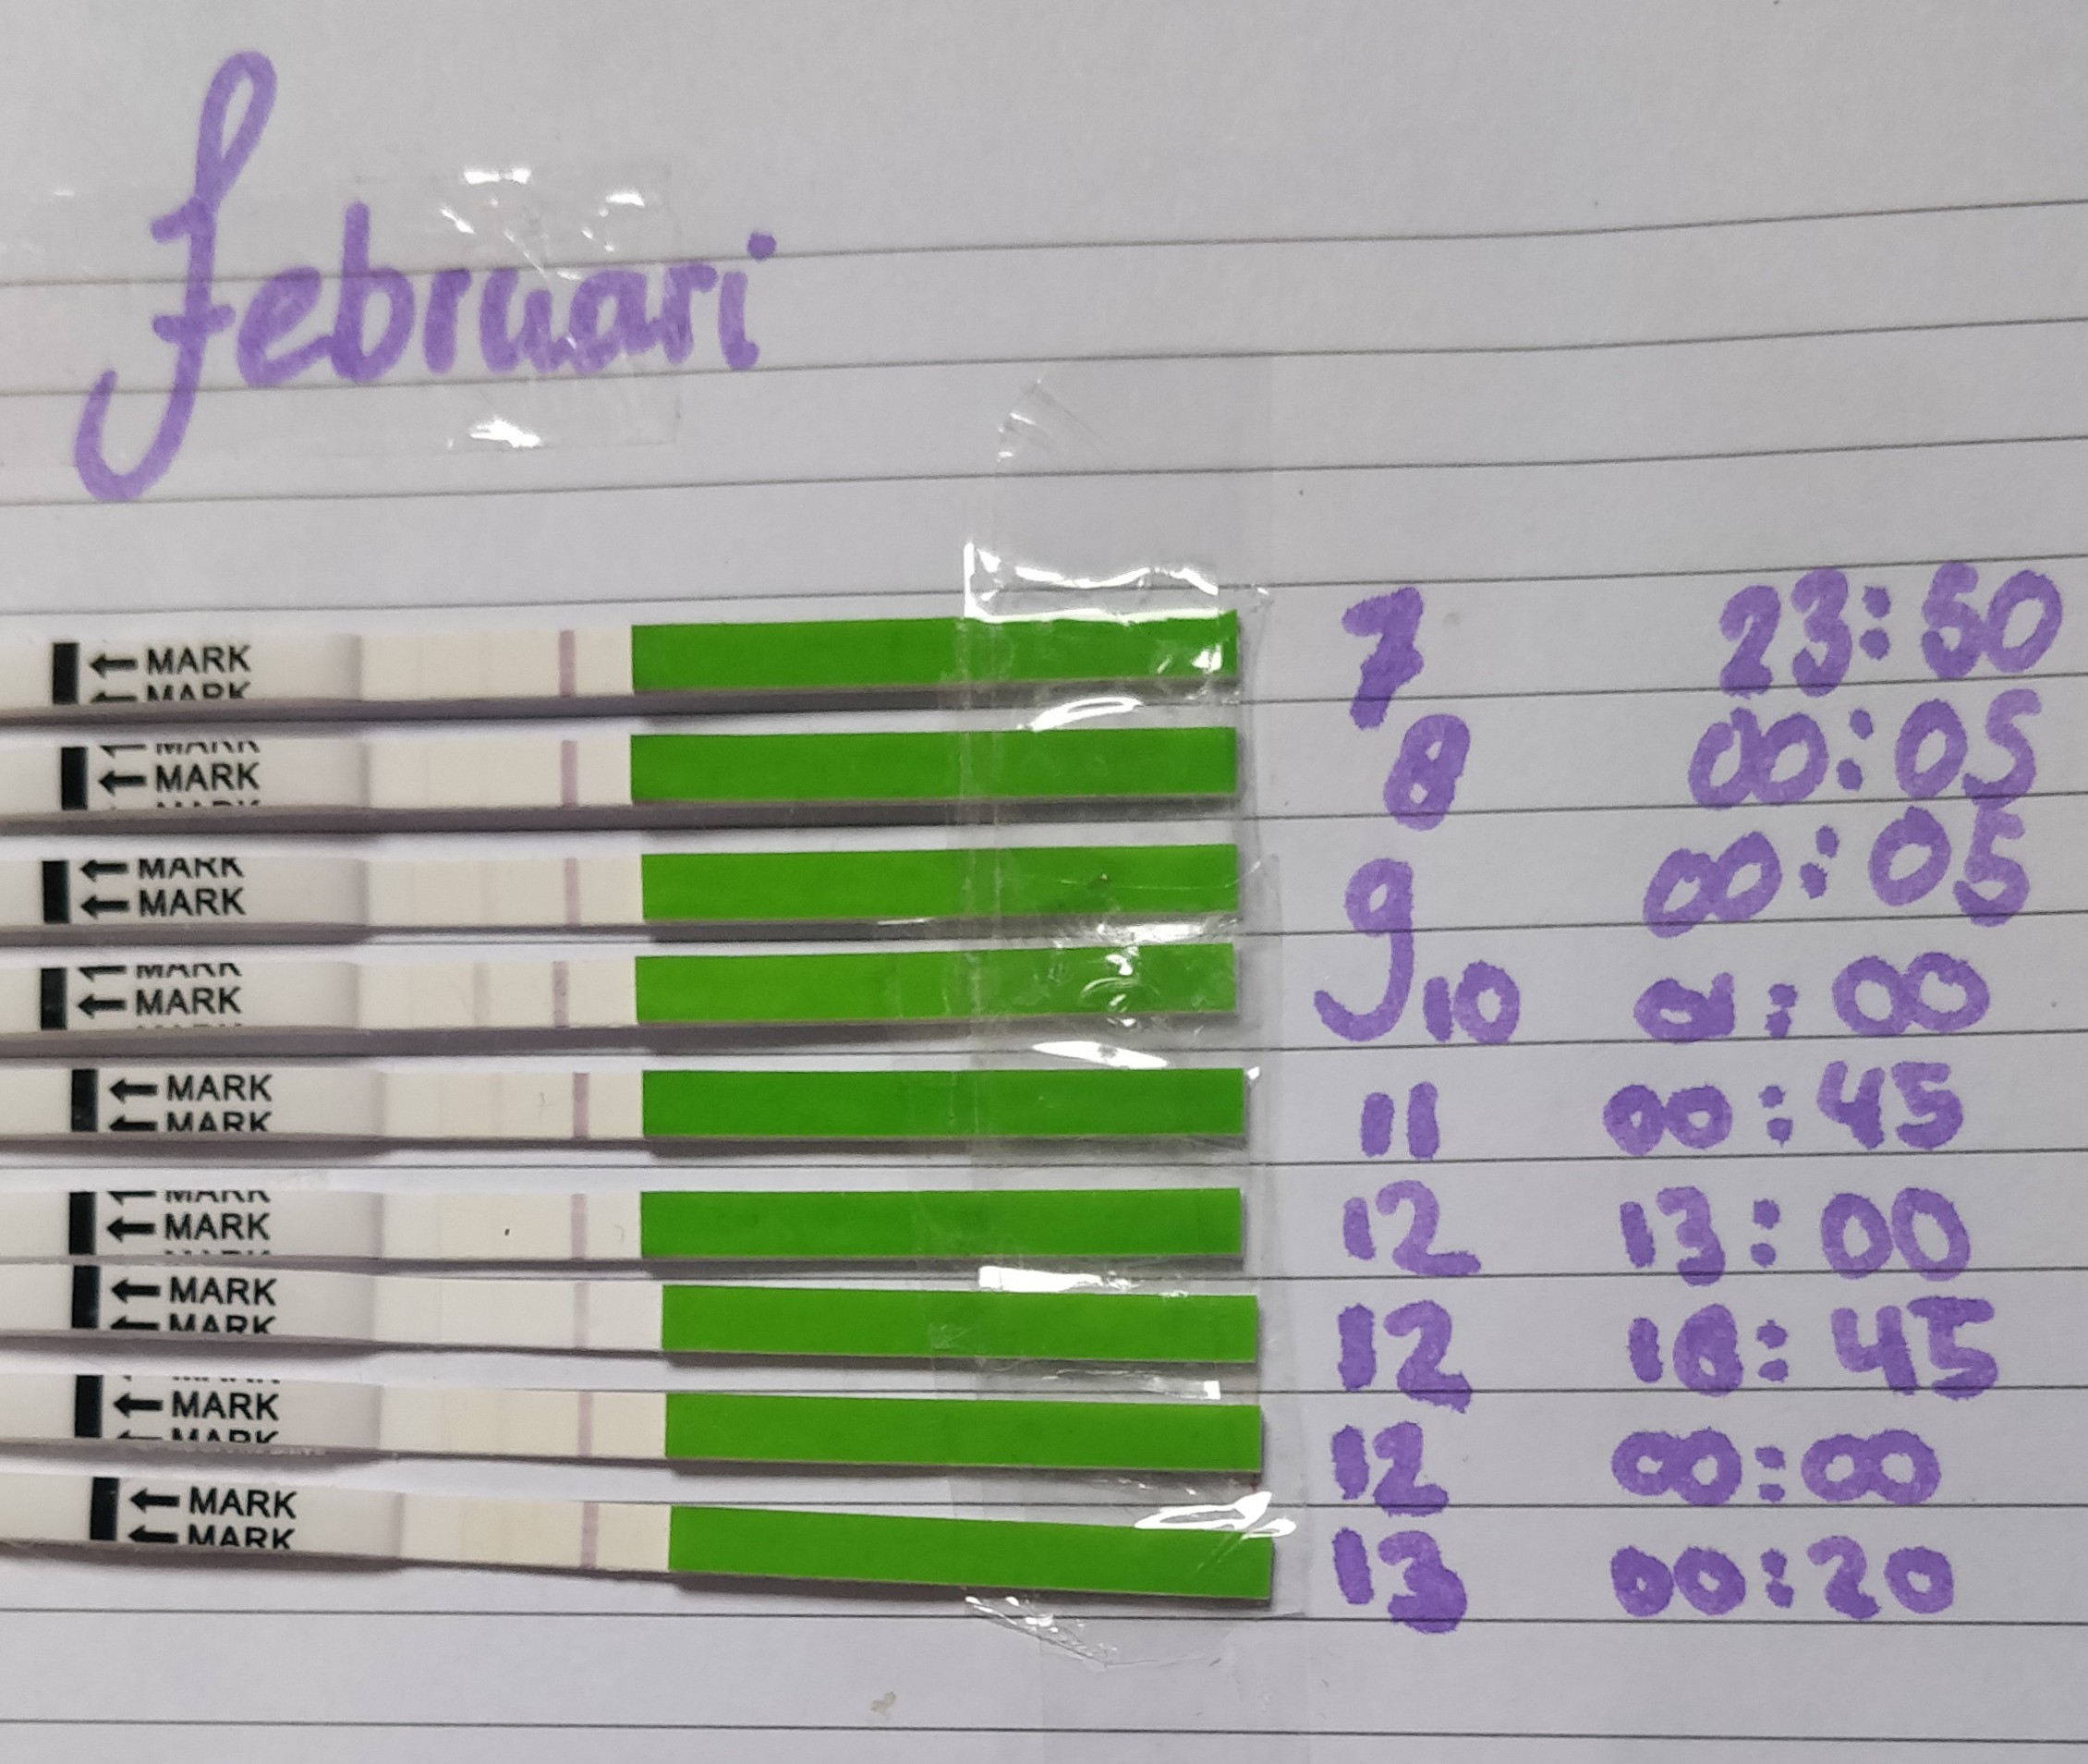 februari
MARK 7 23:50
MARK
MARK
MARK 8 00:05
MARK
MARK
MARK 9 00:05
MARK
MARK 10 01:00
MARK 11 00:45
MARK
MARK
MARK 12 13:00
MARK 12 18:45
MARK
MARK 12 00:00
MARK
MARK 13 00:20
MARK